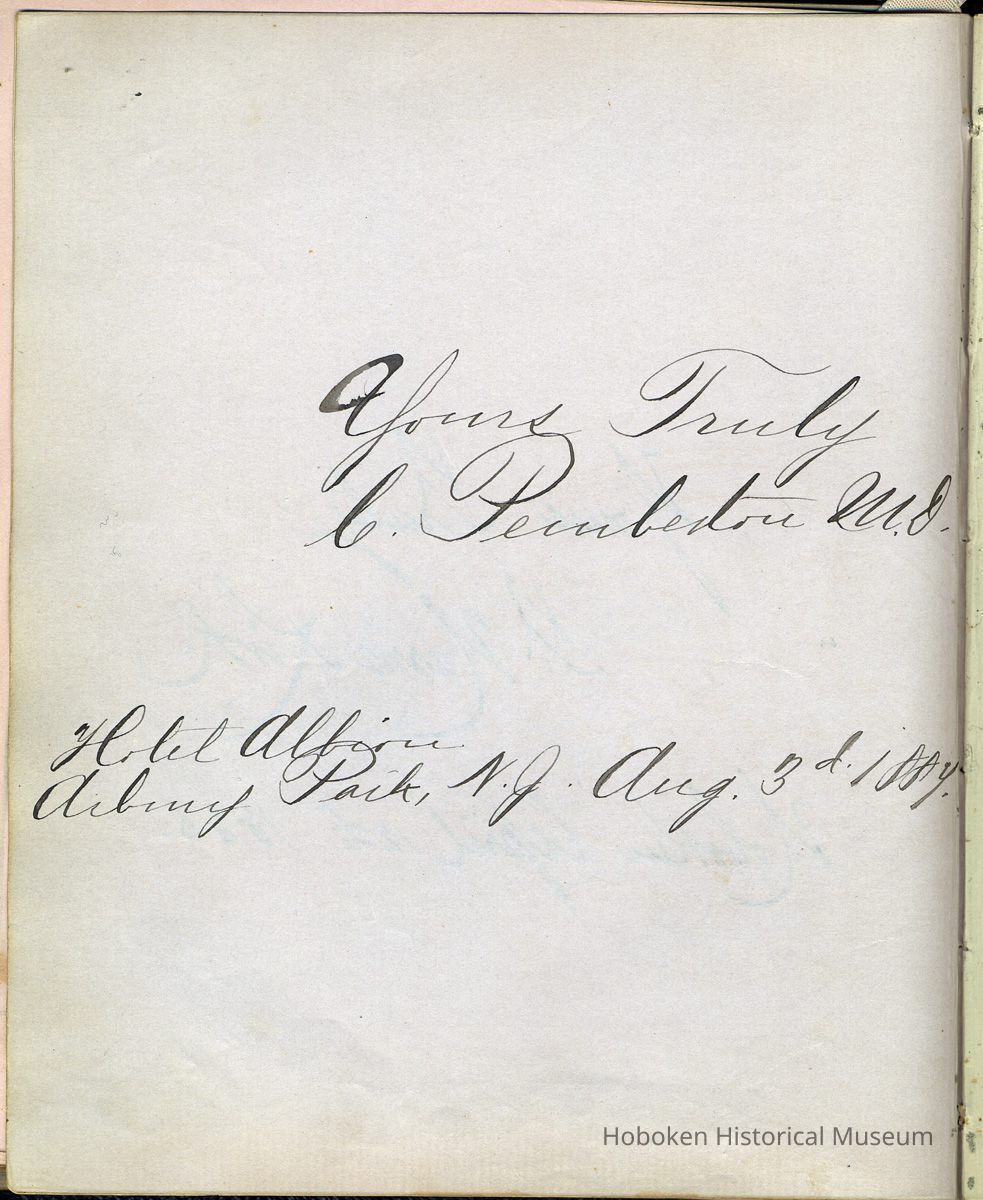 Yours Truly
C. Pemberton M.D.
Hotel Albion
Asbury Park, N.J. Aug. 3d. 1887.
Hoboken Historical Museum